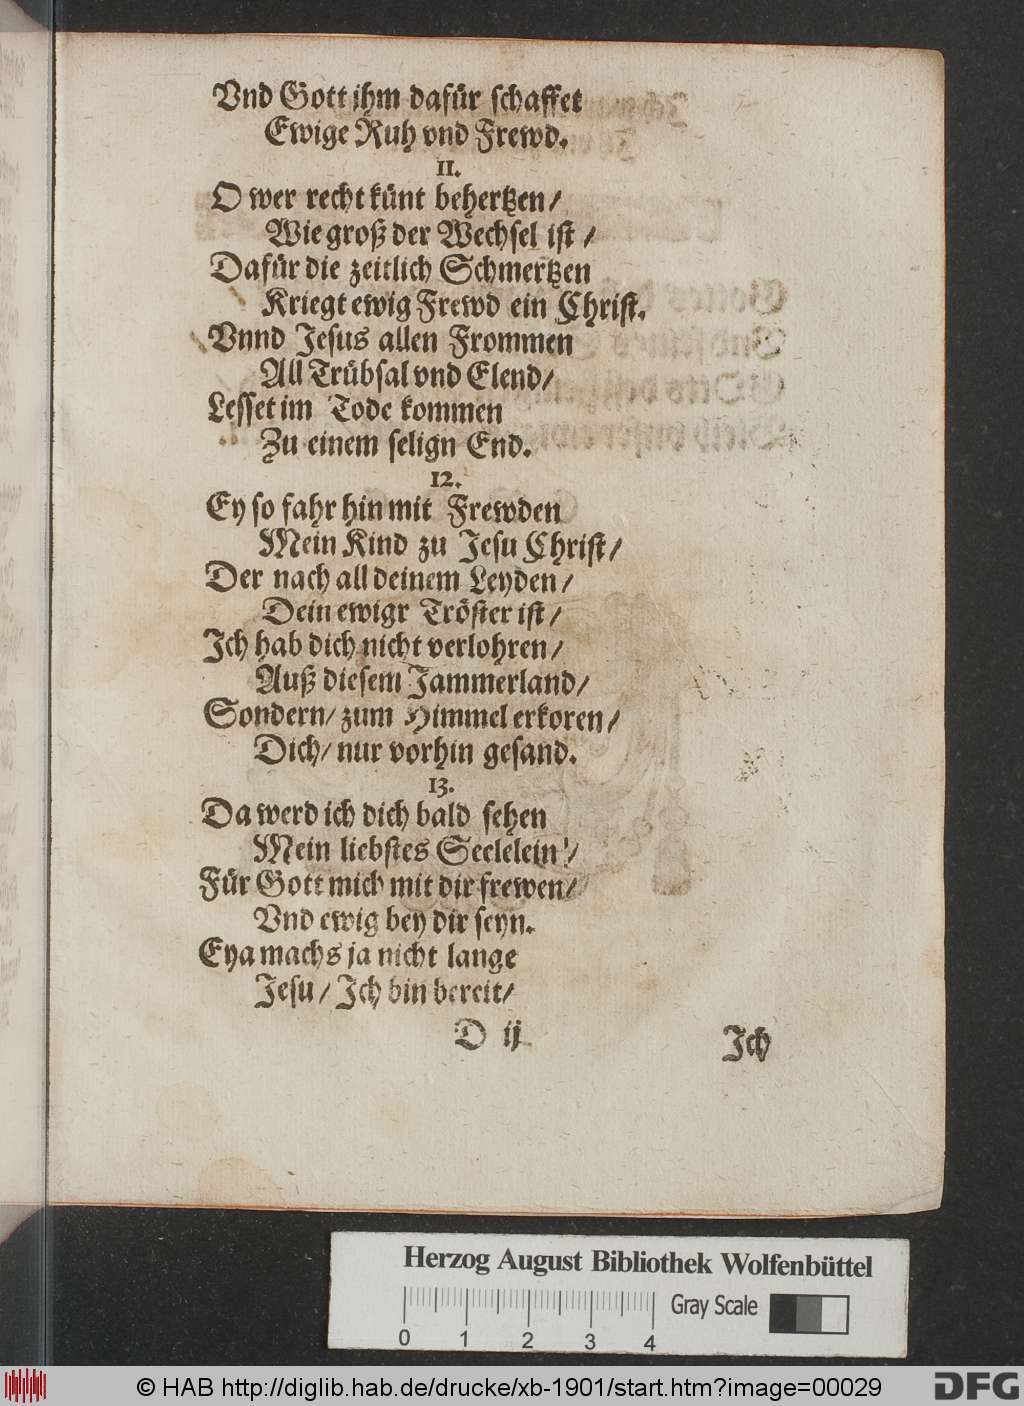 Vnd Gott jhm dafür schaffet
Ewige Ruh vnd Frewd.
11.
O wer recht künt behertzen/
Wie groß der Wechsel ist/
Dafür die zeitlich Schmertzen
Kriegt ewig Frewd ein Christ.
Vnnd Jesus allen Frommen
All Trübsal vnd Elend/
Lesset im Tode kommen
Zu einem selign End.
12.
Ey so fahr hin mit Frewden
Mein Kind zu Jesu Christ/
Der nach all deinem Leyden/
Dein ewigr Tröster ist/
Ich hab dich nicht verlohren/
Auß diesem Jammerland/
Sondern/ zum Himmel erkoren/
Dich/ nur vorhin gesand.
13.
Da werd ich dich bald sehen
Mein liebstes Seelelein!/
Für Gott mich mit dir frewen/
Vnd ewig bey dir seyn.
Eya machs ja nicht lange
Jesu/ Ich bin bereit/
D ij
Ich
Herzog August Bibliothek Wolfenbüttel
Gray Scale
0 1 2 3 4
© HAB http://diglib.hab.de/drucke/xb-1901/start.htm?image=00029
DFG